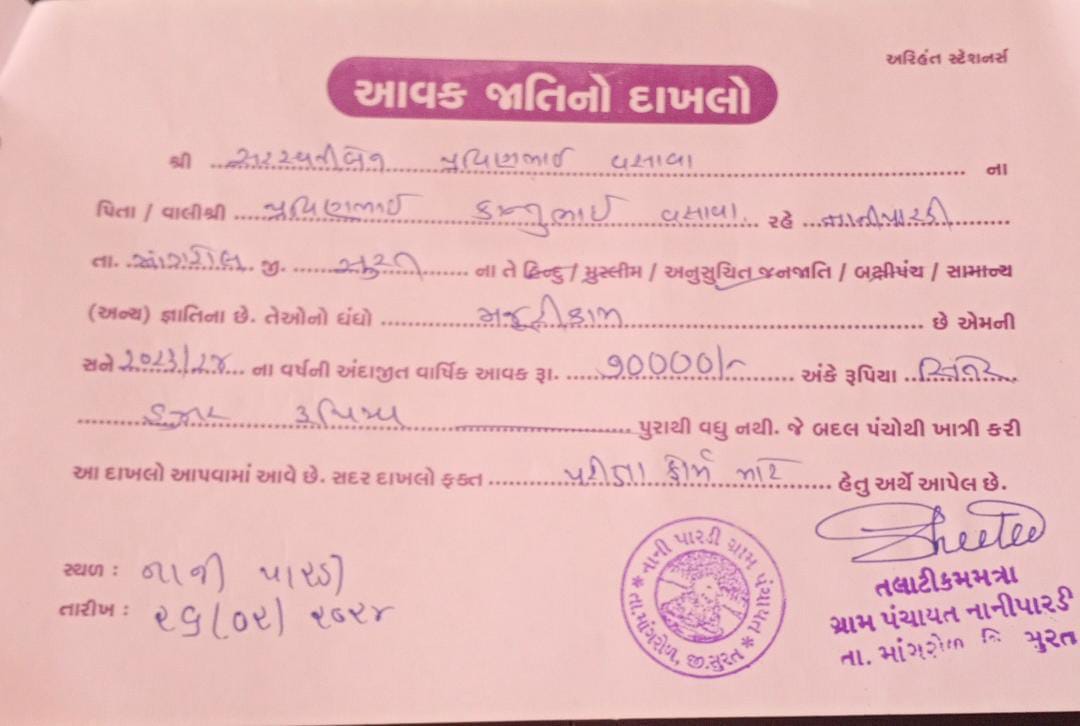 અરિહંત સ્ટેશનર્સ
આવક જાતિનો દાખલો
શ્રી ..સરસ્વતીબેન પ્રવિણભાઈ વસાવા.. ના
પિતા / વાલીશ્રી ..પ્રવિણભાઈ કાનુભાઈ વસાવા.. રહે ..નાનીપારડી..
તા. ..માંગરોલ.. જી. ..સુરત.. ના તે હિન્દુ / મુસ્લીમ / અનુસુચિત જનજાતિ / બક્ષીપંચ / સામાન્ય
(અન્ય) જ્ઞાતિના છે. તેઓનો ધંધો ..મજુરીકામ.. છે એમની
સને ૨૦૨૩/૨૪ ના વર્ષની અંદાજીત વાર્ષિક આવક રૂા. ..૭૦૦૦૦/-.. અંકે રૂપિયા ..સિત્તેર..
..હજાર રૂપિયા.. પુરાથી વધુ નથી. જે બદલ પંચોથી ખાત્રી કરી
આ દાખલો આપવામાં આવે છે. સદર દાખલો ફક્ત ..પરીક્ષા ફોર્મ માટે.. હેતુ અર્થે આપેલ છે.
સ્થળ : નાની પારડી
તારીખ : ૨૬/૦૨/૨૦૨૪
* નાની પારડી ગ્રામ પંચાયત * તા.માંગરોળ, જી.સુરત
તલાટીકમમંત્રી
ગ્રામ પંચાયત નાનીપારડી
તા. માંગરોળ જિ સુરત